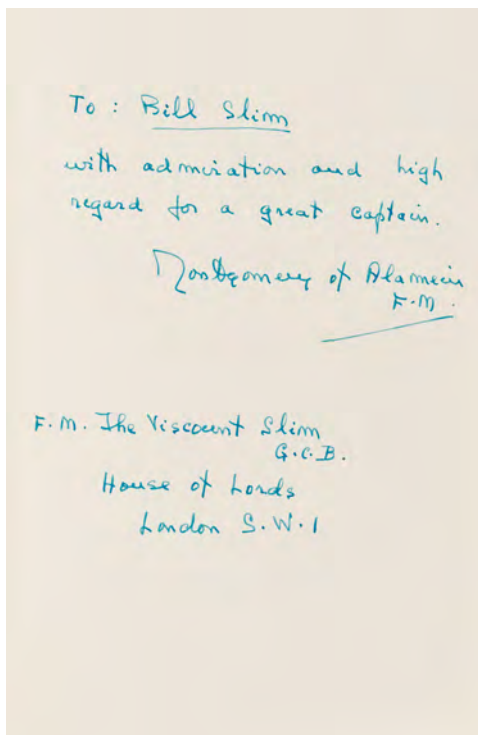 To : Bill Slim
with admiration and high
regard for a great captain.
Montgomery of Alamein
F.M.
F.M. The Viscount Slim
G.C.B.
House of Lords
London S.W.1